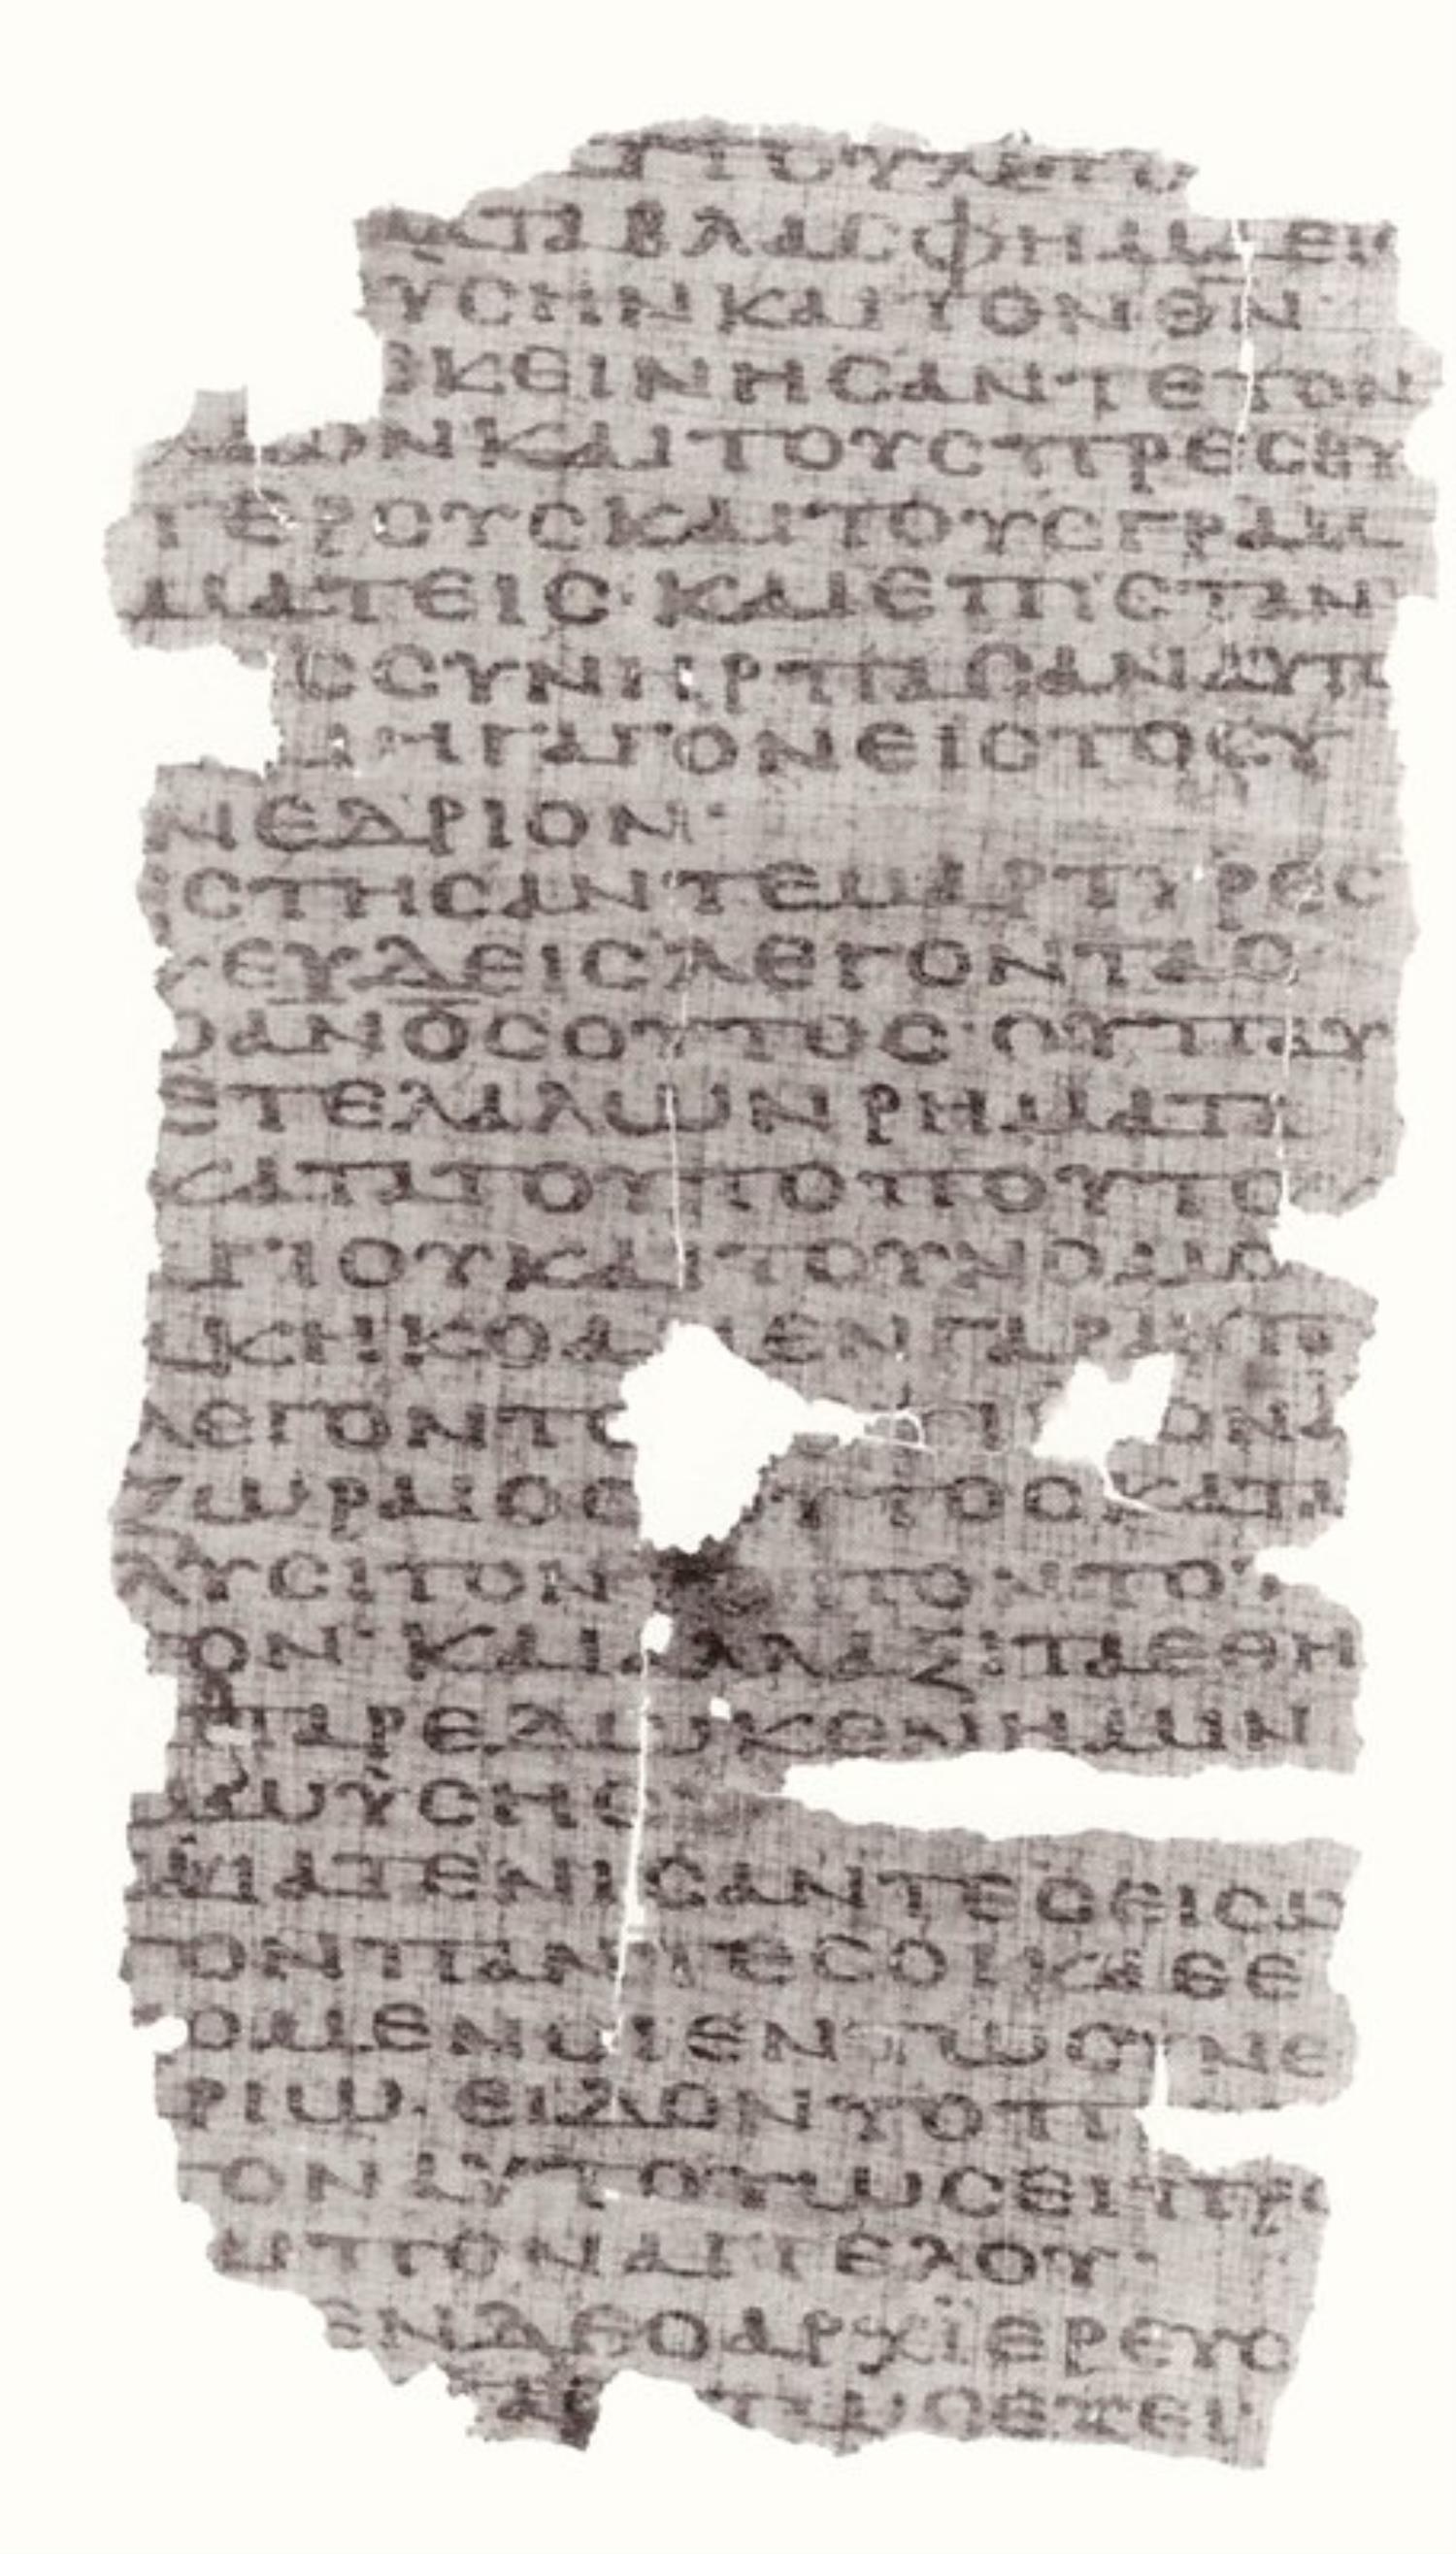 ΤΟΥ ΛΑΛΟΥ
ΜΑΤΑ ΒΛΑСΦΗΜΑ ΕΙ
ΥСΗΝ ΚΑΙ ΤΟΝ Θ̅Ν̅·
ΕΚΕΙΝΗСΑΝ ΤΕ ΤΟΝ
ΛΑΟΝ ΚΑΙ ΤΟΥС ΠΡΕСΒΥ
ΤΕΡΟΥС ΚΑΙ ΤΟΥС ΓΡΑΜ
ΜΑΤΕΙС· ΚΑΙ ΕΠΙСΤΑΝ
С СΥΝΗΡΠΑСΑΝ ΑΥΤ
ΗΓΑΓΟΝ ΕΙС ΤΟ СΥ
ΝΕΔΡΙΟΝ·
СΤΗСΑΝ ΤΕ ΜΑΡΤΥΡΕС
ΕΥΔΕΙС ΛΕΓΟΝΤΑС
Ο Α̅Ν̅Ο̅С̅ ΟΥΤΟС ΟΥ ΠΑΥ
ΕΤΕ ΛΑΛΩΝ ΡΗΜΑΤΑ
ΚΑΤΑ ΤΟΥ ΤΟΠΟΥ ΤΟ
ΓΙΟΥ ΚΑΙ ΤΟΥ ΝΟΜΟ
ΑΚΗΚΟΑΜΕΝ ΓΑΡ ΑΥΤΟ
ΛΕΓΟΝΤΟ ΟΤΙ Ο ΝΑ
ΖΩΡΑΙΟС ΟΥΤΟС ΚΑΤΑ
ΛΥСΙ ΤΟΝ ΤΟΠΟΝ ΤΟΥ
ΟΝ· ΚΑΙ ΑΛΛΑΞΙ ΤΑ ΕΘΗ
Α ΠΑΡΕΔΩΚΕΝ ΗΜΙΝ
ΜΩΥСΗС
ΚΑΙ ΑΤΕΝΙСΑΝΤΕС ΕΙС Α
ΤΟΝ ΠΑΝΤΕС ΟΙ ΚΑΘΕ
ΟΜΕΝΟΙ ΕΝ ΤΩ СΥΝΕ
ΡΙΩ· ΕΙΔΟΝ ΤΟ Π
ΠΟΝ ΑΥΤΟΥ ΩСΕΙ ΠΡΟ
ΩΠΟΝ ΑΓΓΕΛΟΥ·
ΕΝ ΔΕ Ο ΑΡΧΙΕΡΕΥС
ΤΩС ΕΧΕΙ